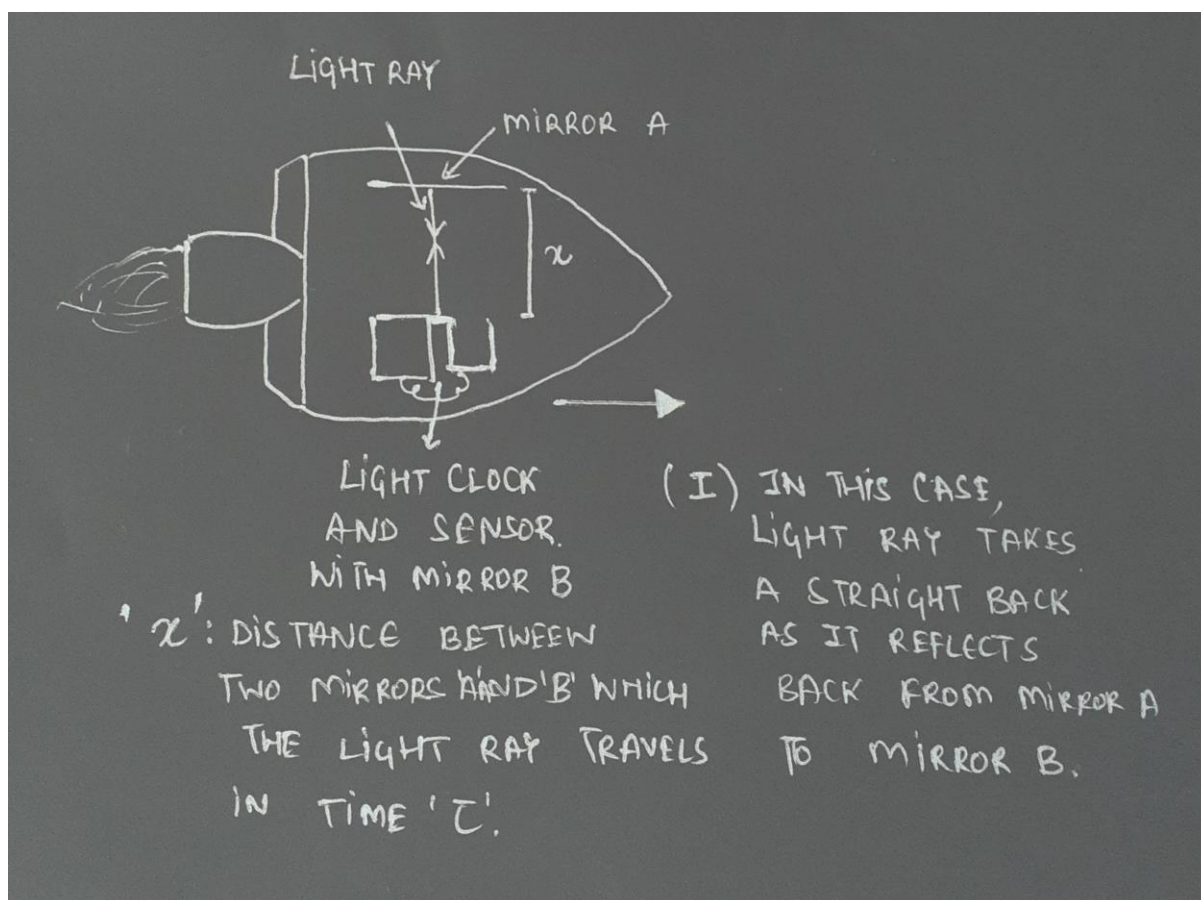 LIGHT RAY
MIRROR A
x
LIGHT CLOCK
AND SENSOR.
WITH MIRROR B
'x': DISTANCE BETWEEN
TWO MIRRORS 'A' AND 'B' WHICH
THE LIGHT RAY TRAVELS
IN TIME 'τ'.
(I) IN THIS CASE,
LIGHT RAY TAKES
A STRAIGHT BACK
AS IT REFLECTS
BACK FROM MIRROR A
TO MIRROR B.